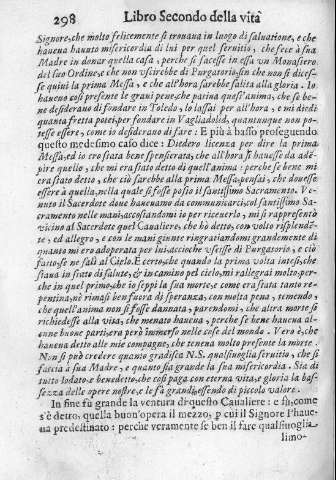 298 Libro Secondo della vita
Signore, che molto felicemente si trouaua in luogo di saluatione, e che
haueua hauuto misericordia di lui per quel seruitio, che fece à sua
Madre in donar quella casa, perche si facesse in essa vn Monastero
del suo Ordine, e che non vscirebbe di Purgatorio, sin che non si dices-
se quiui la prima Messa, e che all'hora sarebbe salita alla gloria. Io
haueua così presente le graui pene, che patiua quest'anima, che se be-
ne desiderauo di fondare in Toledo, lo lassai per all'hora, e mi diedi
quanta fretta potei, per fondare in Vagliadolid, quantunque non po-
tesse essere, come io desiderauo di fare: E più à basso proseguendo
questo medesimo caso dice: Diedero licenza per dire la prima
Messa, ed io ero stata bene spenserata, che all'hora si hauesse da adé-
pire quello, che mi era stato detto di quell'anima: perche se bene mi
era stato detto, che ciò sarebbe alla prima Messa, pensai, che douesse
essere à quella, nella quale si fosse posto il santissimo Sacramento. Ve-
nuto il Sacerdote doue haueuamo da communicarci, col santissimo Sa-
cramento nelle mani, accostandomi io per riceuerlo, mi si rappresentò
vicino al Sacerdote quel Caualiere, che hò detto, con volto risplendé-
te, ed allegro, e con le mani giunte ringratiandomi grandemente di
quanto mi ero adoperata per lui, accioche vscisse di Purgatorio, e ciò
fatto, se ne salì al Cielo. E certo, che quando la prima volta intesi, che
staua in stato di salute, & in camino pel cielo, mi rallegrai molto: per-
che in quel primo, che io seppi la sua morte, e come era stata tanto re-
pentina, nè rimasi ben fuora di speranza, con molta pena, temendo,
che quell'anima non si fosse dannata, parendomi, che altra morte si
richiedesse alla vita, che menato haueua, perche se bene haueua al-
cune buone parti, era però immerso nelle cose del mondo. Vero è, che
haueua detto alle mie compagne, che teneua molto presente la morte.
Non si può credere quanto gradisca N.S. qualsiuoglia seruitio, che si
faccia à sua Madre, e quanto sia grande la sua misericordia. Sia di
tutto lodato, e benedetto, che così paga con eterna vita, e gloria la bas-
sezza delle opere nostre, e le fà grandi, essendo di piccolo valore.
In fine fù grande la ventura di questo Caualiere: e fù, come
s'è detto, quella buon'opera il mezzo, p cui il Signore l'haue-
ua predestinato: perche veramente se ben il fare qualsiuoglia
limo-